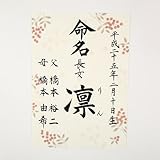 平成二十五年二月十日生
命名
長女
凛
りん
父 橋本裕二
母 橋本由希子